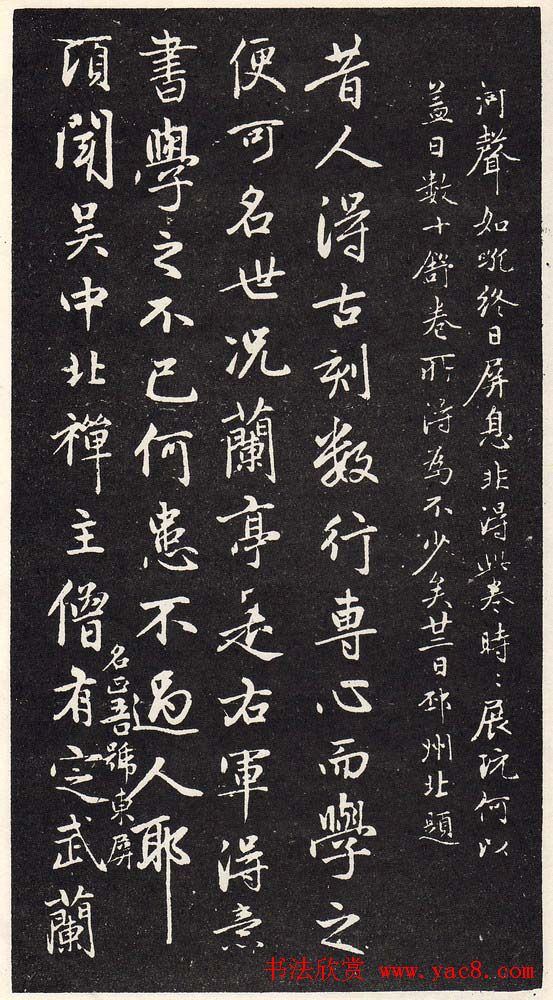 河聲如吼終日屏息非得此卷時〻展玩何以
蓋日數十舒卷所得為不少矣廿二日邳州北題
昔人得古刻數行專心而學之
便可名世况蘭亭是右軍得意
書學之不已何患不過人耶
頃聞吴中北禪主僧有定武蘭
名正吾號東屏
书法欣赏 www.yac8.com